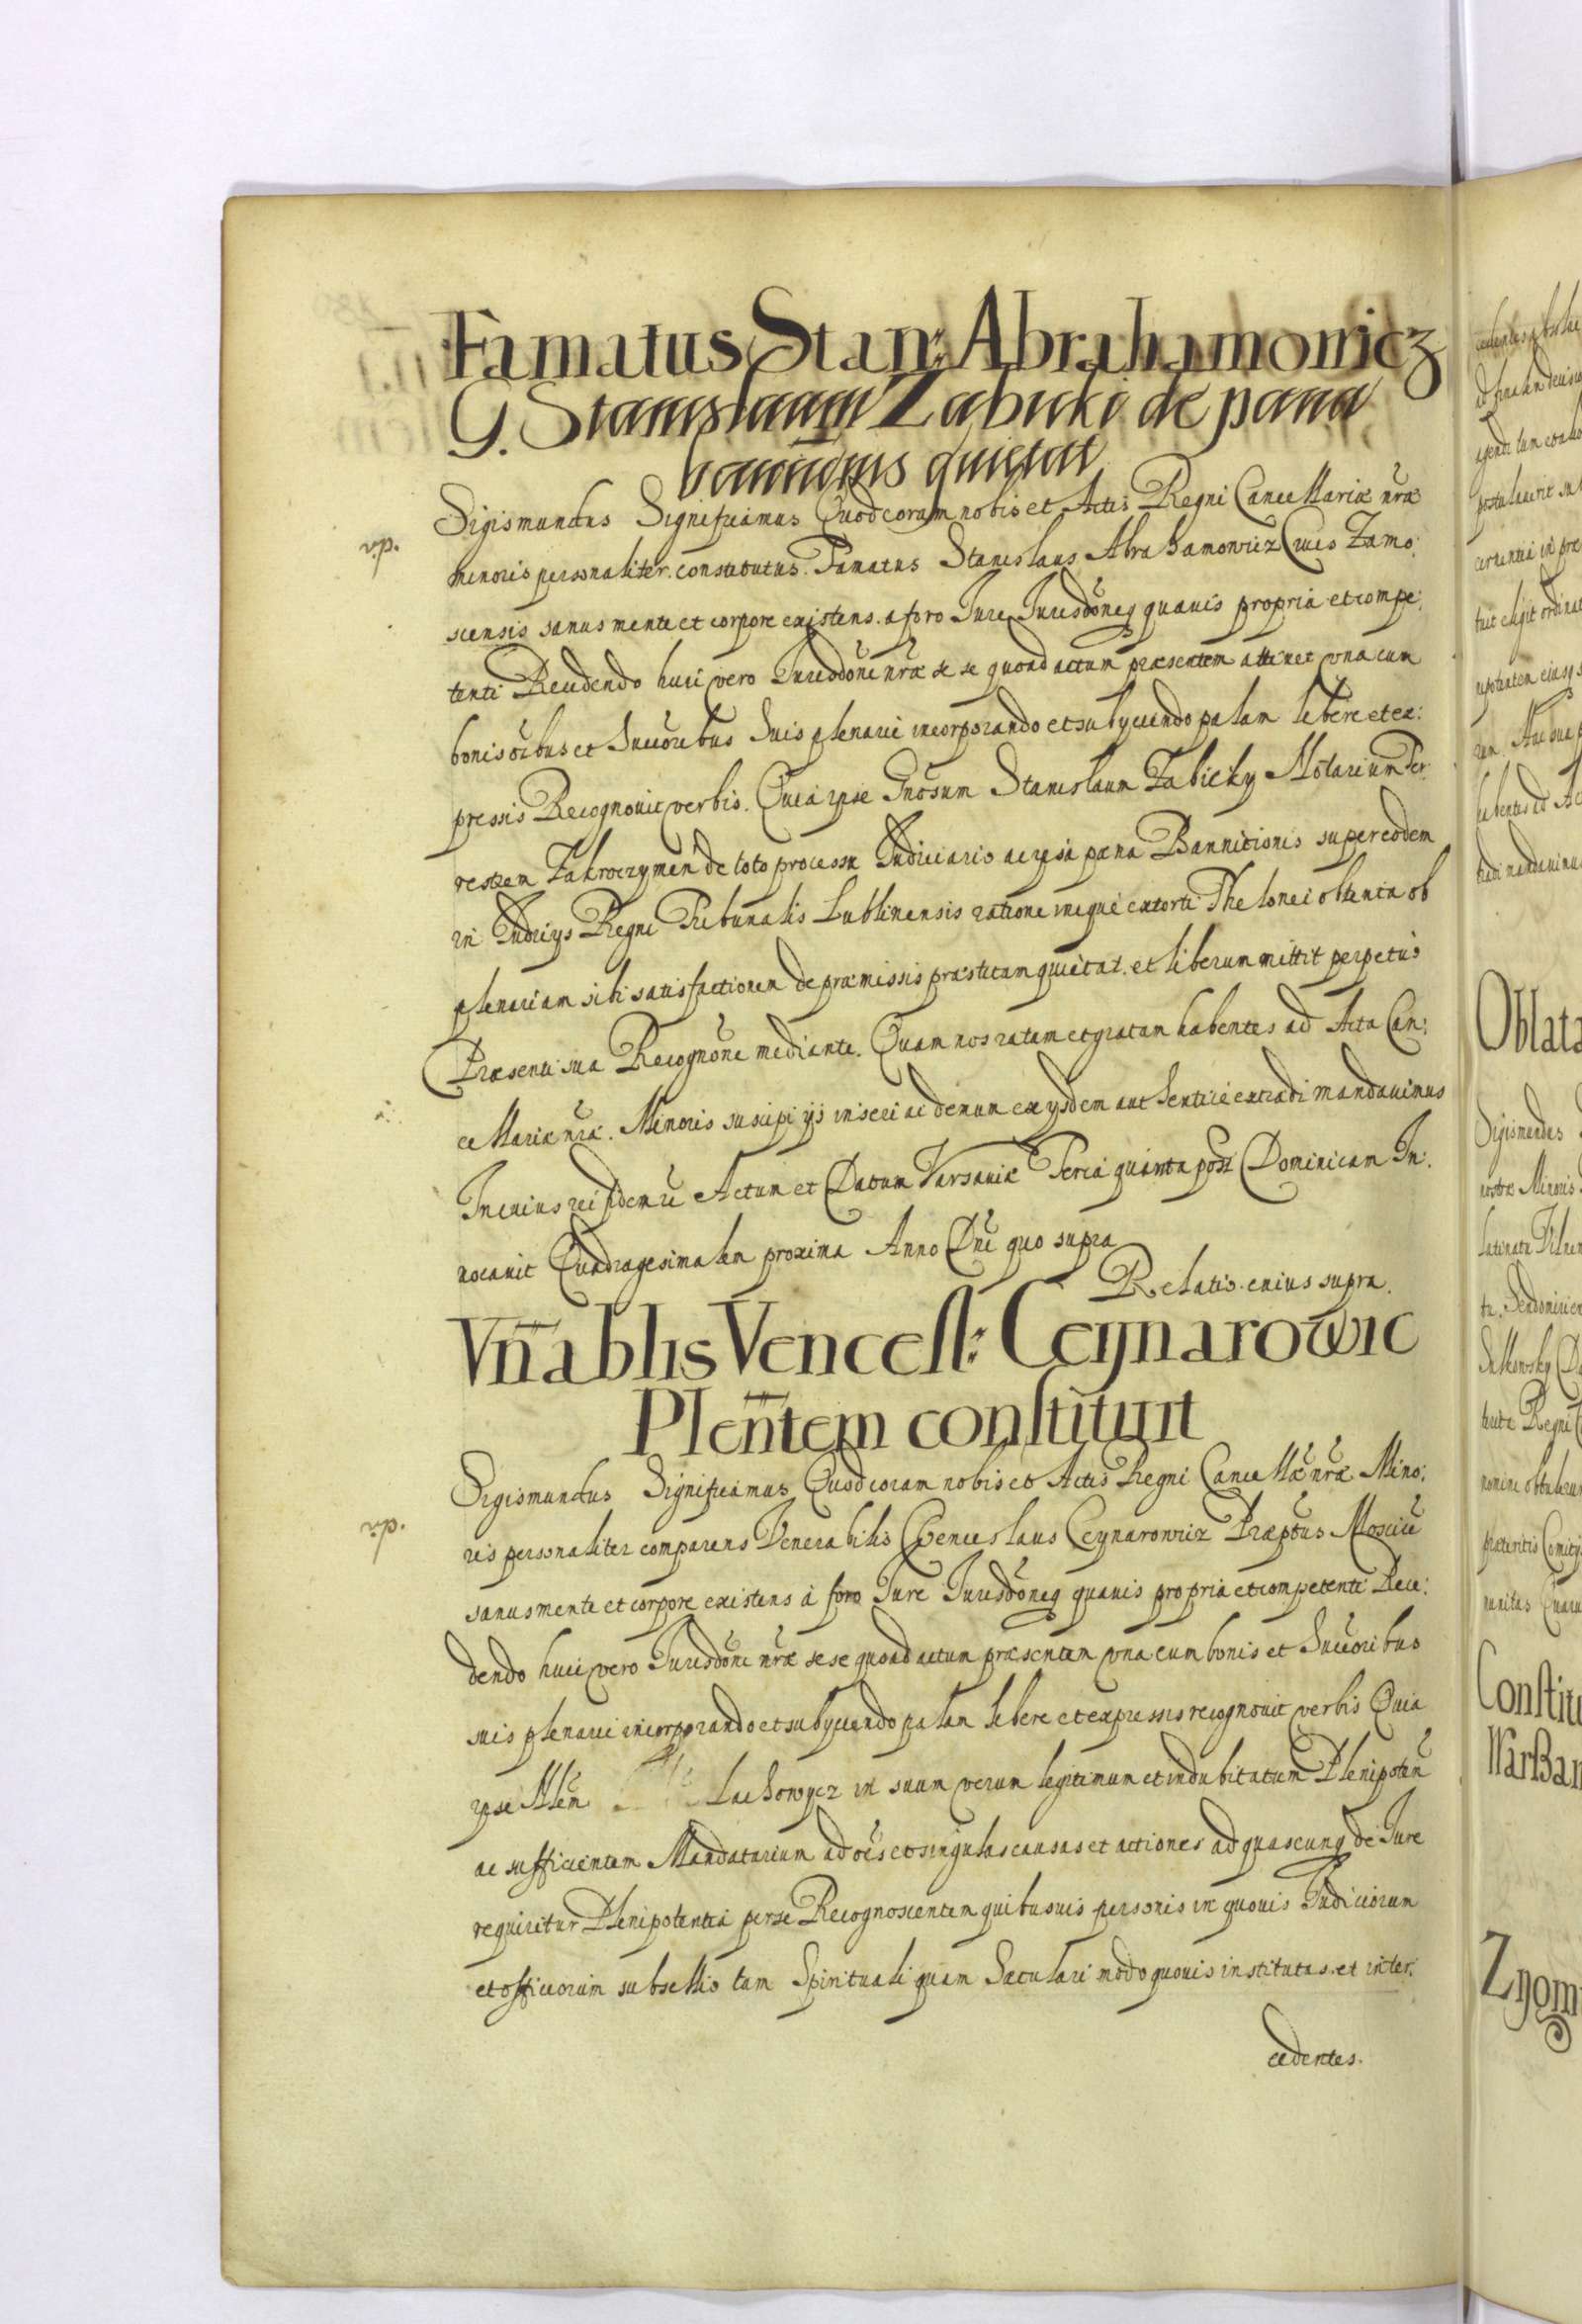 Famatus Stan: Abrahamowicz
G. Stanislaum Zabicki de pæna
bannitionis quietat
Sigismundus Significamus Quod coram nobis et Actis Regni Cancellariæ nræ
v.p.
minoris personaliter constitutus Famatus Stanislaus Abrahamowicz Civis Zamo:
scensis sanus mente et corpore existens. a foro Jure Jurisdoneq quavis propria et compe:
tenti Recedendo huic vero Jurisdoni nræ se se quoad actum præsentem attinet una cum
bonis oibus et Succoribus Suis plenarie incorporando et subyciendo palam libere et ex:
pressis Recognovit verbis. Quia ipse Gnosum Stanislaum Zabicky Notarium Ter:
restrem Zakroczymen de toto processu Judiciario ac ipsa pæna Bannitionis super eodem
in Judicijs Regni Tribunalis Lublinensis ratione inique extorti Thelonei obtenta ob
plenariam sibi satisfactionem de præmissis præstitam quietat. et liberum mittit perpetuo
Præsenti sua Recognone mediante. Quam nos ratam et gratam habentes ad Acta Can:
cellariæ nræ. Minoris suscipi ijs inseri ac demum ex ysdem authentice extradi mandavimus
In cuius rei fidem Actum et Datum Varsaviæ Feria quinta post Dominicam In:
vocavit Quadragesimalem proxima Anno Dni quo supra
Relatio cuius supra.
Vnablis Vencesl: Ceynarowic
Plentem constituit
Sigismundus Significamus Quod coram nobis et Actis Regni Cancellæ nræ Mino:
v.p.
ris personaliter comparens Venerabilis Venceslaus Ceynarowicz Præptus Moscic
sanus mente et corpore existens à foro Jure Jurisdoneq quavis propria et competenti Rece:
dendo huic vero Jurisdoni nræ sese quoad actum præsentem una cum bonis et Succoribus
suis plenarie incorporando et subyciendo palam libere et expressis recognovit verbis Quia
ipse Lachowycz in suum verum legitimum et indubitatum Plenipoten
ac sufficientem Mandatarium ad oes et singulas causas et actiones ad quascunq de Jure
requiritur Plenipotentia per se Recognoscentem quibusvis personis in quovis Judiciorum
et officiorum subsellio tam Spirituali quam Sæculari modo quovis institutas et inter:
cedentes.
Oblata
Sigismundus
Constitu
WarBan
Zyom